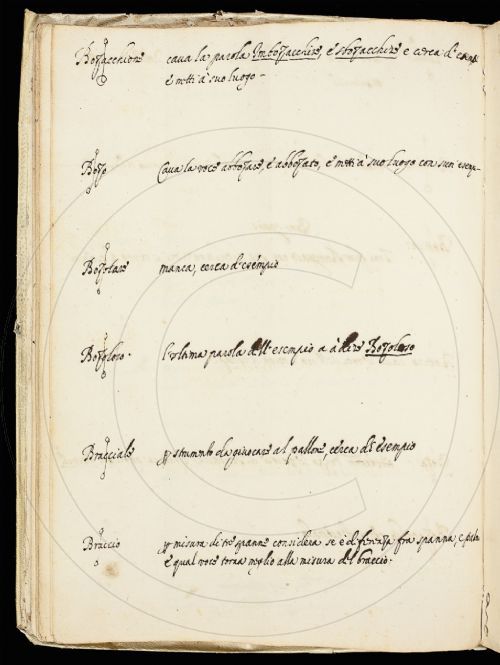 Bozzacchione cava la parola Imbozzacchire, e stozzacchire e cerca d'esempi
e metti à suo luogo -
Bozzo Cava la voce abbozzare, e abbozzato, e metti à suo luogo con suoi esempi -
Bozzolare manca, cerca d'esempio
Bozzoloso. l'ultima parola dell'esempio a à dire Bozzoloso
Bracciale p strumento da giuocare al pallone cerca di esempio
Braccio p misura di tre spanne considera se è differenza fra spanna, e palm
e qual voce torna meglio alla misura del braccio.